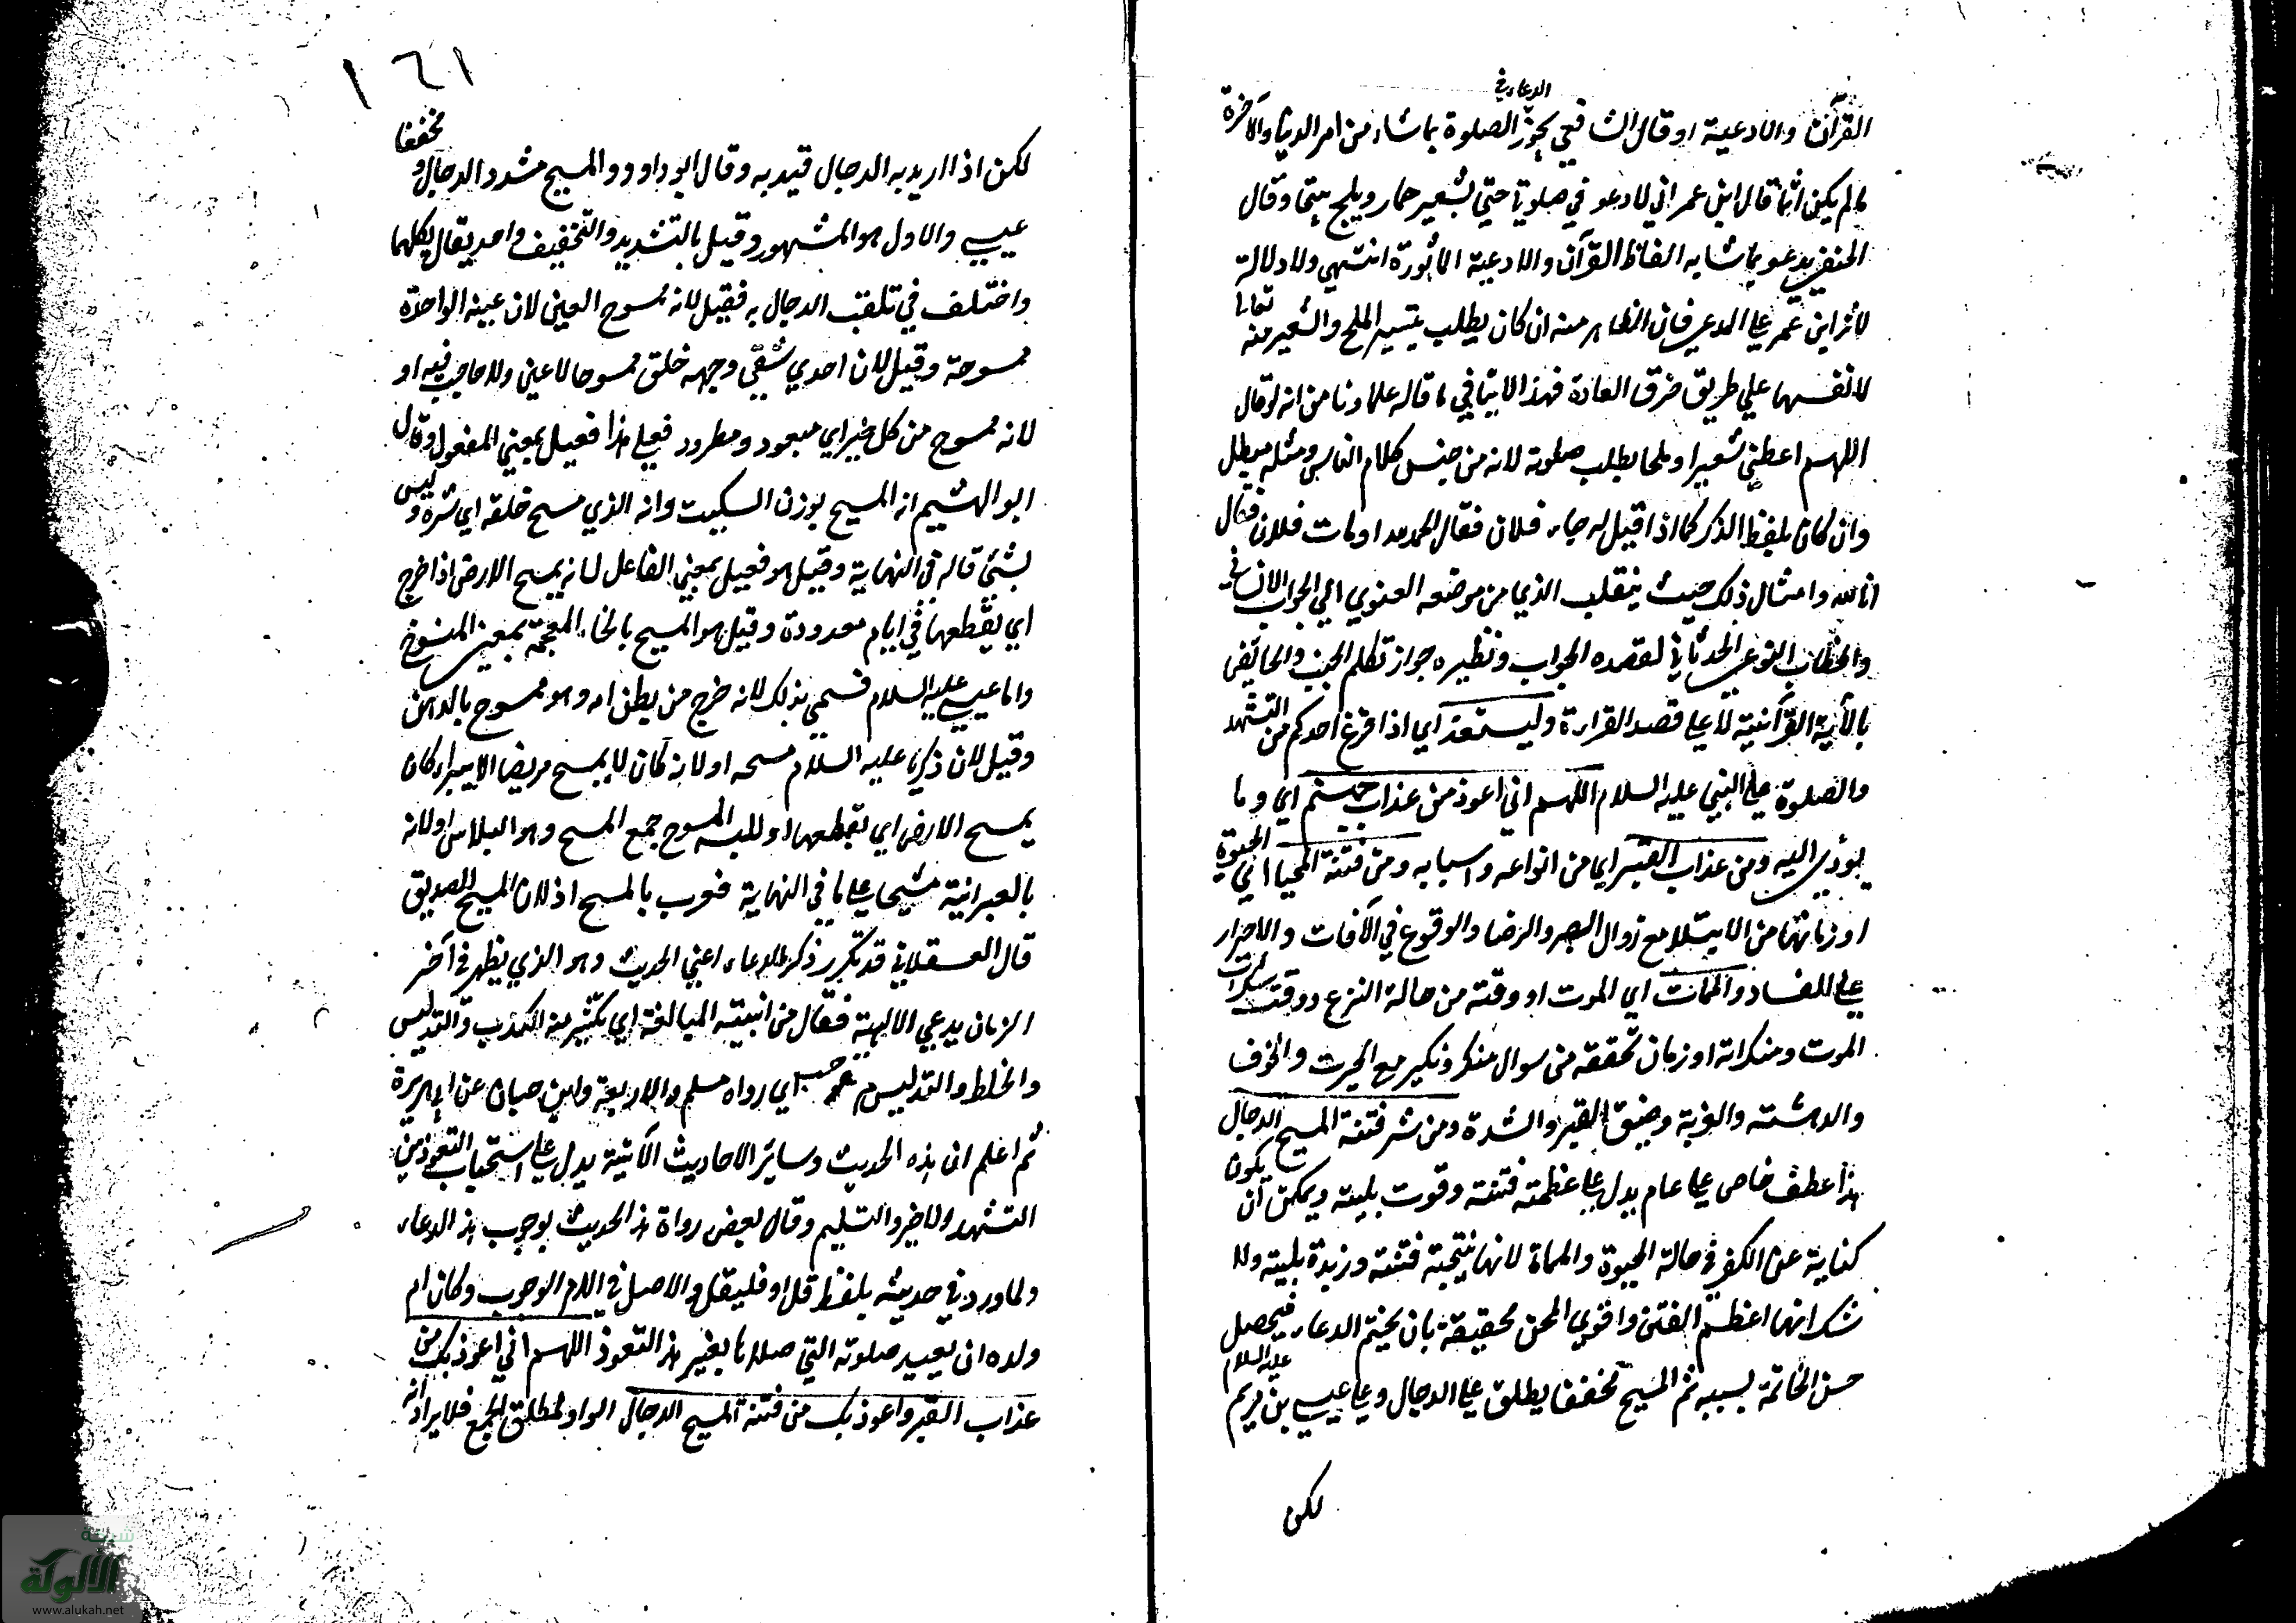 الدعاء في
القرآن والادعية او قال الشافعي يجوز الصلوة بما شاء من امر الدنيا والآخرة
ما لم يكن اثما قال ابن عمر اني لادعو في صلوتي حتى بشعير حمار وبملح بيتي وقال
الحنفي يدعو بما شابه الفاظ القرآن والادعية الماثورة انتهى ولا دلالة
لاثر ابن عمر على المدعى فان الظاهر منه ان كان يطلب تيسير الملح والشعير منه تعالى
لا نفسهما على طريق خرق العادة فهذا لا ينافي ما قاله علماؤنا من انه لو قال
اللهم اعطني شعيرا وملحا بطلب صلوته لانه من جنس كلام الناس ومثله مبطل
وان كان بلفظ الذكر كما اذا قيل له جاء فلان فقال الحمد لله او مات فلان فقال
انا لله وامثال ذلك حيث ينقلب الذي من موضعه العنوي الى الجواب
والخطاب لقصده الجواب ونظيره جواز تكلم الجنب والحائض
بالآية القرآنية لا على قصد القراءة وليستعذ اي اذا فرغ احدكم من التشهد
والصلوة على النبي عليه السلام اللهم اني اعوذ من عذاب جهنم اي وما
يودي اليه ومن عذاب القبر اي من انواعه واسبابه ومن فتنة المحيا اي الحيوة
او زمانها من الابتلا مع زوال الصبر والرضا والوقوع في الآفات والاصرار
على الفساد والممات اي الموت او وقته من حالة النزع ووقت سكرات
الموت ومنكراته او زمان تحققه من سوال منكر ونكير مع الحيرت والخوف
والدهشته والغربة وضيق القبر والشدة ومن شر فتنة المسيح الدجال
هذا عطف خاص على عام يدل على عظمته فتنته وقوت بليته ويمكن ان يكون
كناية عن الكفر في حالة الحيوة والمماة لانها نتيجة فتنته وزبدة بليته ولا
شك انها اعظم الفتن واقوى المحن حقيقة بان يختم الدعاء فيحصل
حسن الخاتمة بسببه ثم المسيح مخففا يطلق على الدجال وعلى عيسى بن مريم عليه السلام
لكن
١٦١
لكن اذا اريد به الدجال قيد به وقال ابو داود والمسيح مشدد الدجال ومخففا
عيسى والاول هو المشهور وقيل بالتشديد والتخفيف واحد يقال لكلهما
واختلف في تلقب الدجال به فقيل لانه ممسوح العين لان عينه الواحدة
ممسوحة وقيل لان احدي شقي وجهه خلق ممسوحا لا عين ولا حاجب فيه او
لانه ممسوح من كل خير اي مبعود ومطرود فعلى هذا فعيل بمعنى المفعول وقال
ابو الهشيم انه المسيح بوزن السكيت وانه الذي مسح خلقه اي شوه وليس
بشئ قاله في النهاية وقيل هو فعيل بمعنى الفاعل لانه يمسح الارض اذا خرج
اي يقطعها في ايام معدودة وقيل هو المسيح بالخاء المعجمة بمعنى الممسوخ
واما عيسى عليه السلام فسمي بذلك لانه خرج من بطن امه وهو ممسوح بالدهن
وقيل لان ذكريا عليه السلام مسحه او لانه كان لا يمسح مريضا الا يبرأ وكان
يمسح الارض اي يقطعها او للبسه المسوح جمع المسح وهو البلاس او لانه
بالعبرانية مشيحا على ما في النهاية فعرب بالمسح اذ لان المسيح الصديق
قال العسقلاني قد تكرر ذكر الدعاء اعني الحديث وهو الذي يظهر في آخر
الزمان يدعي الالهية فقال من ابنيته المبالغة اي يكثر منه الكذب والتدليس
والخلط والتدليس م عه حب اي رواه مسلم والاربعة وابن حبان عن ابي هريرة
ثم اعلم ان هذه الحديث وسائر الاحاديث الآتية يدل على استحباب التعوذ بين
التشهد والاخير والتسليم وقال بعض رواة هذ الحديث بوجوب هذ الدعاء
ولما ورد في حديثه بلفظ قل او فليقل والاصل في اللام الوجوب وكان ام
ولده ان يعيد صلوته التي صلاها بغير هذ التعوذ اللهم اني اعوذ بك من
عذاب القبر واعوذ بك من فتنة المسيح الدجال الواو لمطلق الجمع فلا يراد انه
شبكة
الألوكة
www.alukah.net